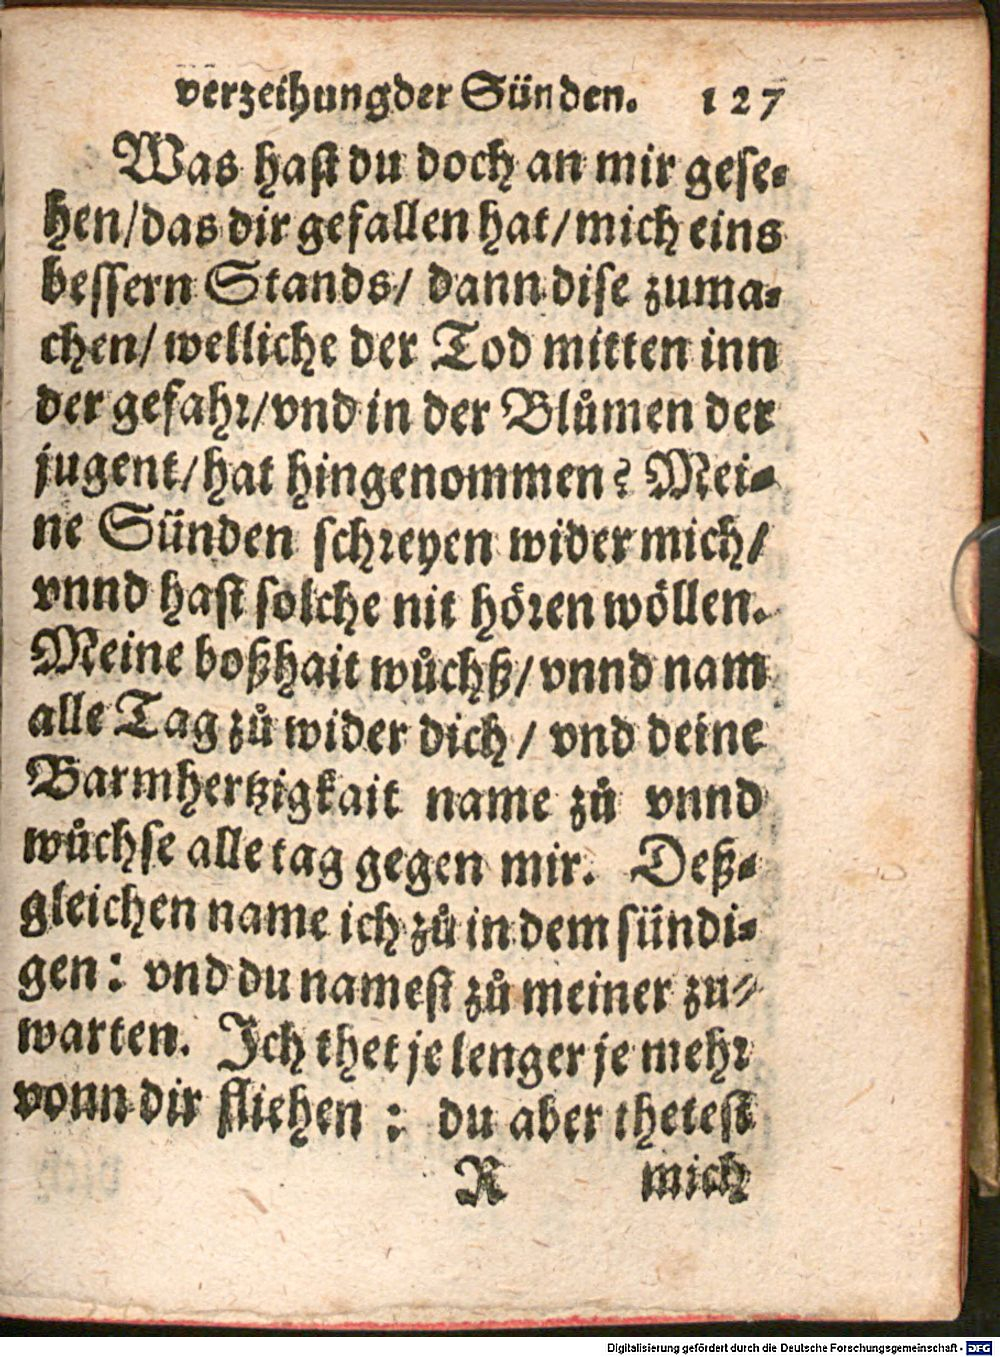 verzeihung der Sünden. 127
Was hast du doch an mir gese-
hen/ das dir gefallen hat/ mich eins
bessern Stands/ dann dise zuma-
chen/ welliche der Tod mitten inn
der gefahr/ vnd in der Blůmen der
jugent/ hat hingenommen? Mei-
ne Sünden schreyen wider mich/
vnnd hast solche nit hören wöllen.
Meine boßhait wůchß/ vnnd nam
alle Tag zů wider dich/ vnd deine
Barmhertzigkait name zů vnnd
wůchse alle tag gegen mir. Deß-
gleichen name ich zů in dem sündi-
gen: vnd du namest zů meiner zu-
warten. Ich thet je lenger je mehr
vonn dir fliehen: du aber thetest
R mich
Digitalisierung gefördert durch die Deutsche Forschungsgemeinschaft - DFG